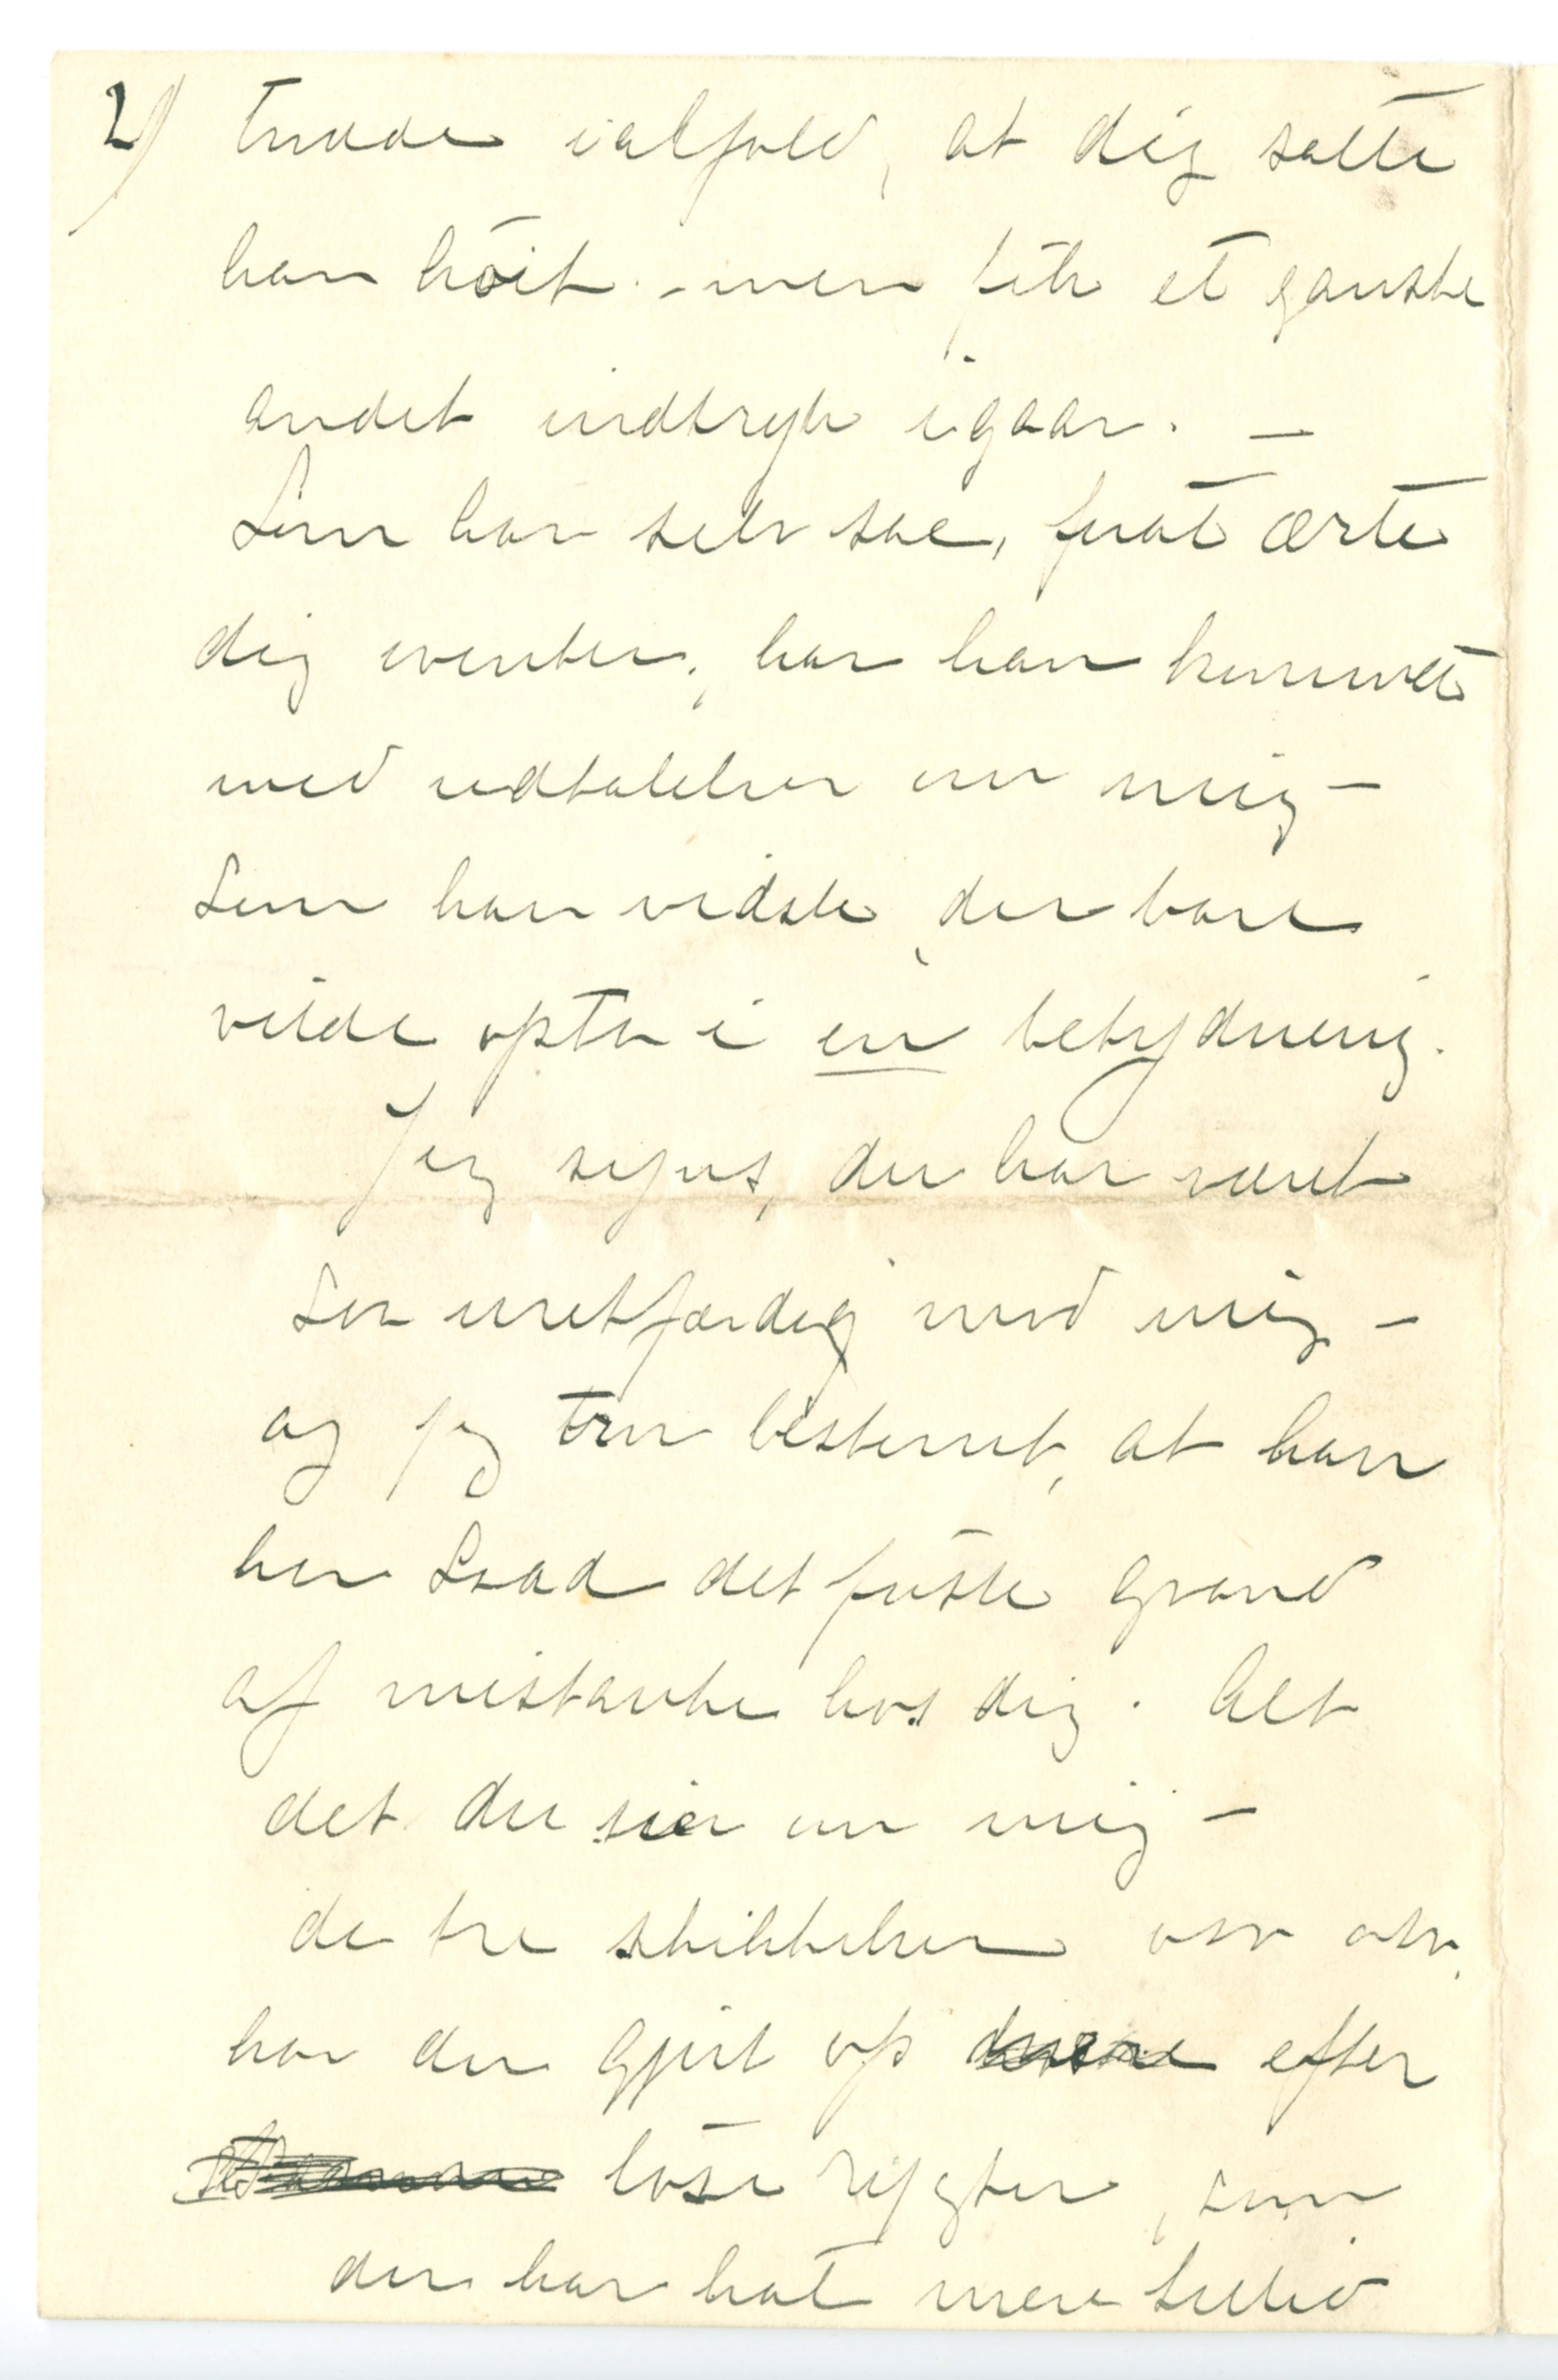 2) trodde ialfald, at dig satte
han høit. – men fik et ganske
andet indtryk igaar. –
Som han selv sae, forat ærte
dig eventer, har han kommet
med udtalelser om mig –
Som han vidste, du bare
vilde opta i en betydning.
Jeg synes, du har været
Saa uretfærdig mod mig –
og jeg tror bestemt, at han
her Saad det første Grand
af mistanke hos dig. Alt
det du sier om mig –
de tre skikkelser osv osv,
har du Gjort op efter
løse Rygter, som
du har hat mere tillid